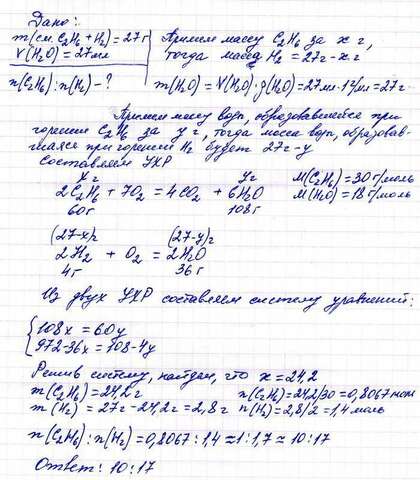 Дано:
m(см. C2H6 + H2) = 27г
V(H2O) = 27мл
n(C2H6) : n(H2) - ?
Примем массу C2H6 за x г,
тогда масса H2 = 27г-x г
m(H2O) = V(H2O)·ρ(H2O) = 27мл·1г/мл = 27г
Примем массу воды, образовавшейся при
горении C2H6 за y г, тогда масса воды, образовав-
шаяся при горении H2 будет 27г-y
Составляем УХР
xг yг
2C2H6 + 7O2 = 4CO2 + 6H2O
60г 108г
M(C2H6) = 30г/моль
M(H2O) = 18г/моль
(27-x)г (27-y)г
2H2 + O2 = 2H2O
4г 36г
Из двух УХР составляем систему уравнений:
{108x = 60y
972-36x = 108-4y
Решив систему, найдем, что x = 24,2
m(C2H6) = 24,2г n(C2H6) = 24,2/30 = 0,8067 моль
m(H2) = 27г - 24,2г = 2,8г n(H2) = 2,8/2 = 1,4 моль
n(C2H6) : n(H2) = 0,8067 : 1,4 ≈ 1:1,7 ≈ 10:17
Ответ: 10:17